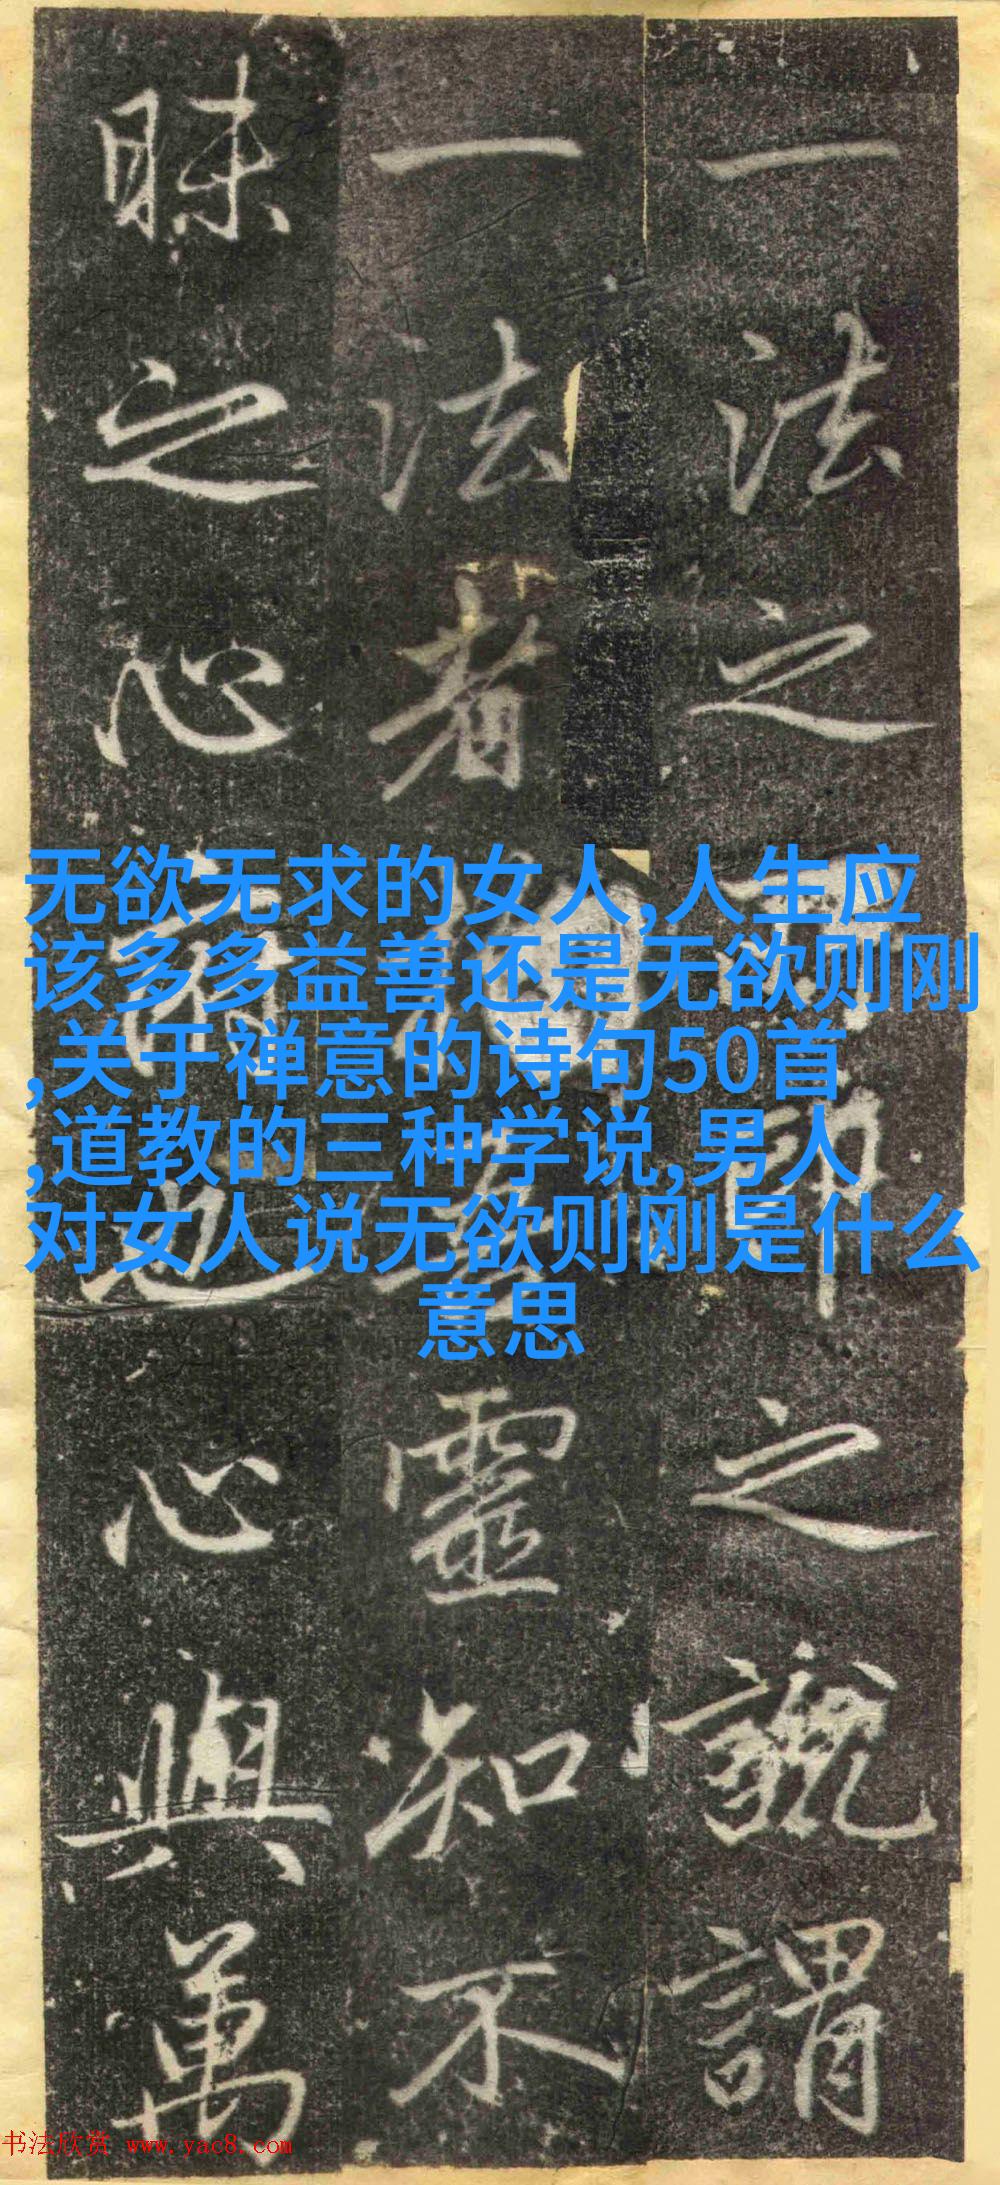 一法之印之謂
一法者靈知不
昧之心也心與萬
无欲无求的女人,人生应
该多多益善还是无欲则刚
,关于禅意的诗句50首
,道教的三种学说,男人
对女人说无欲则刚是什么
意思
书法欣赏 www.yac8.com